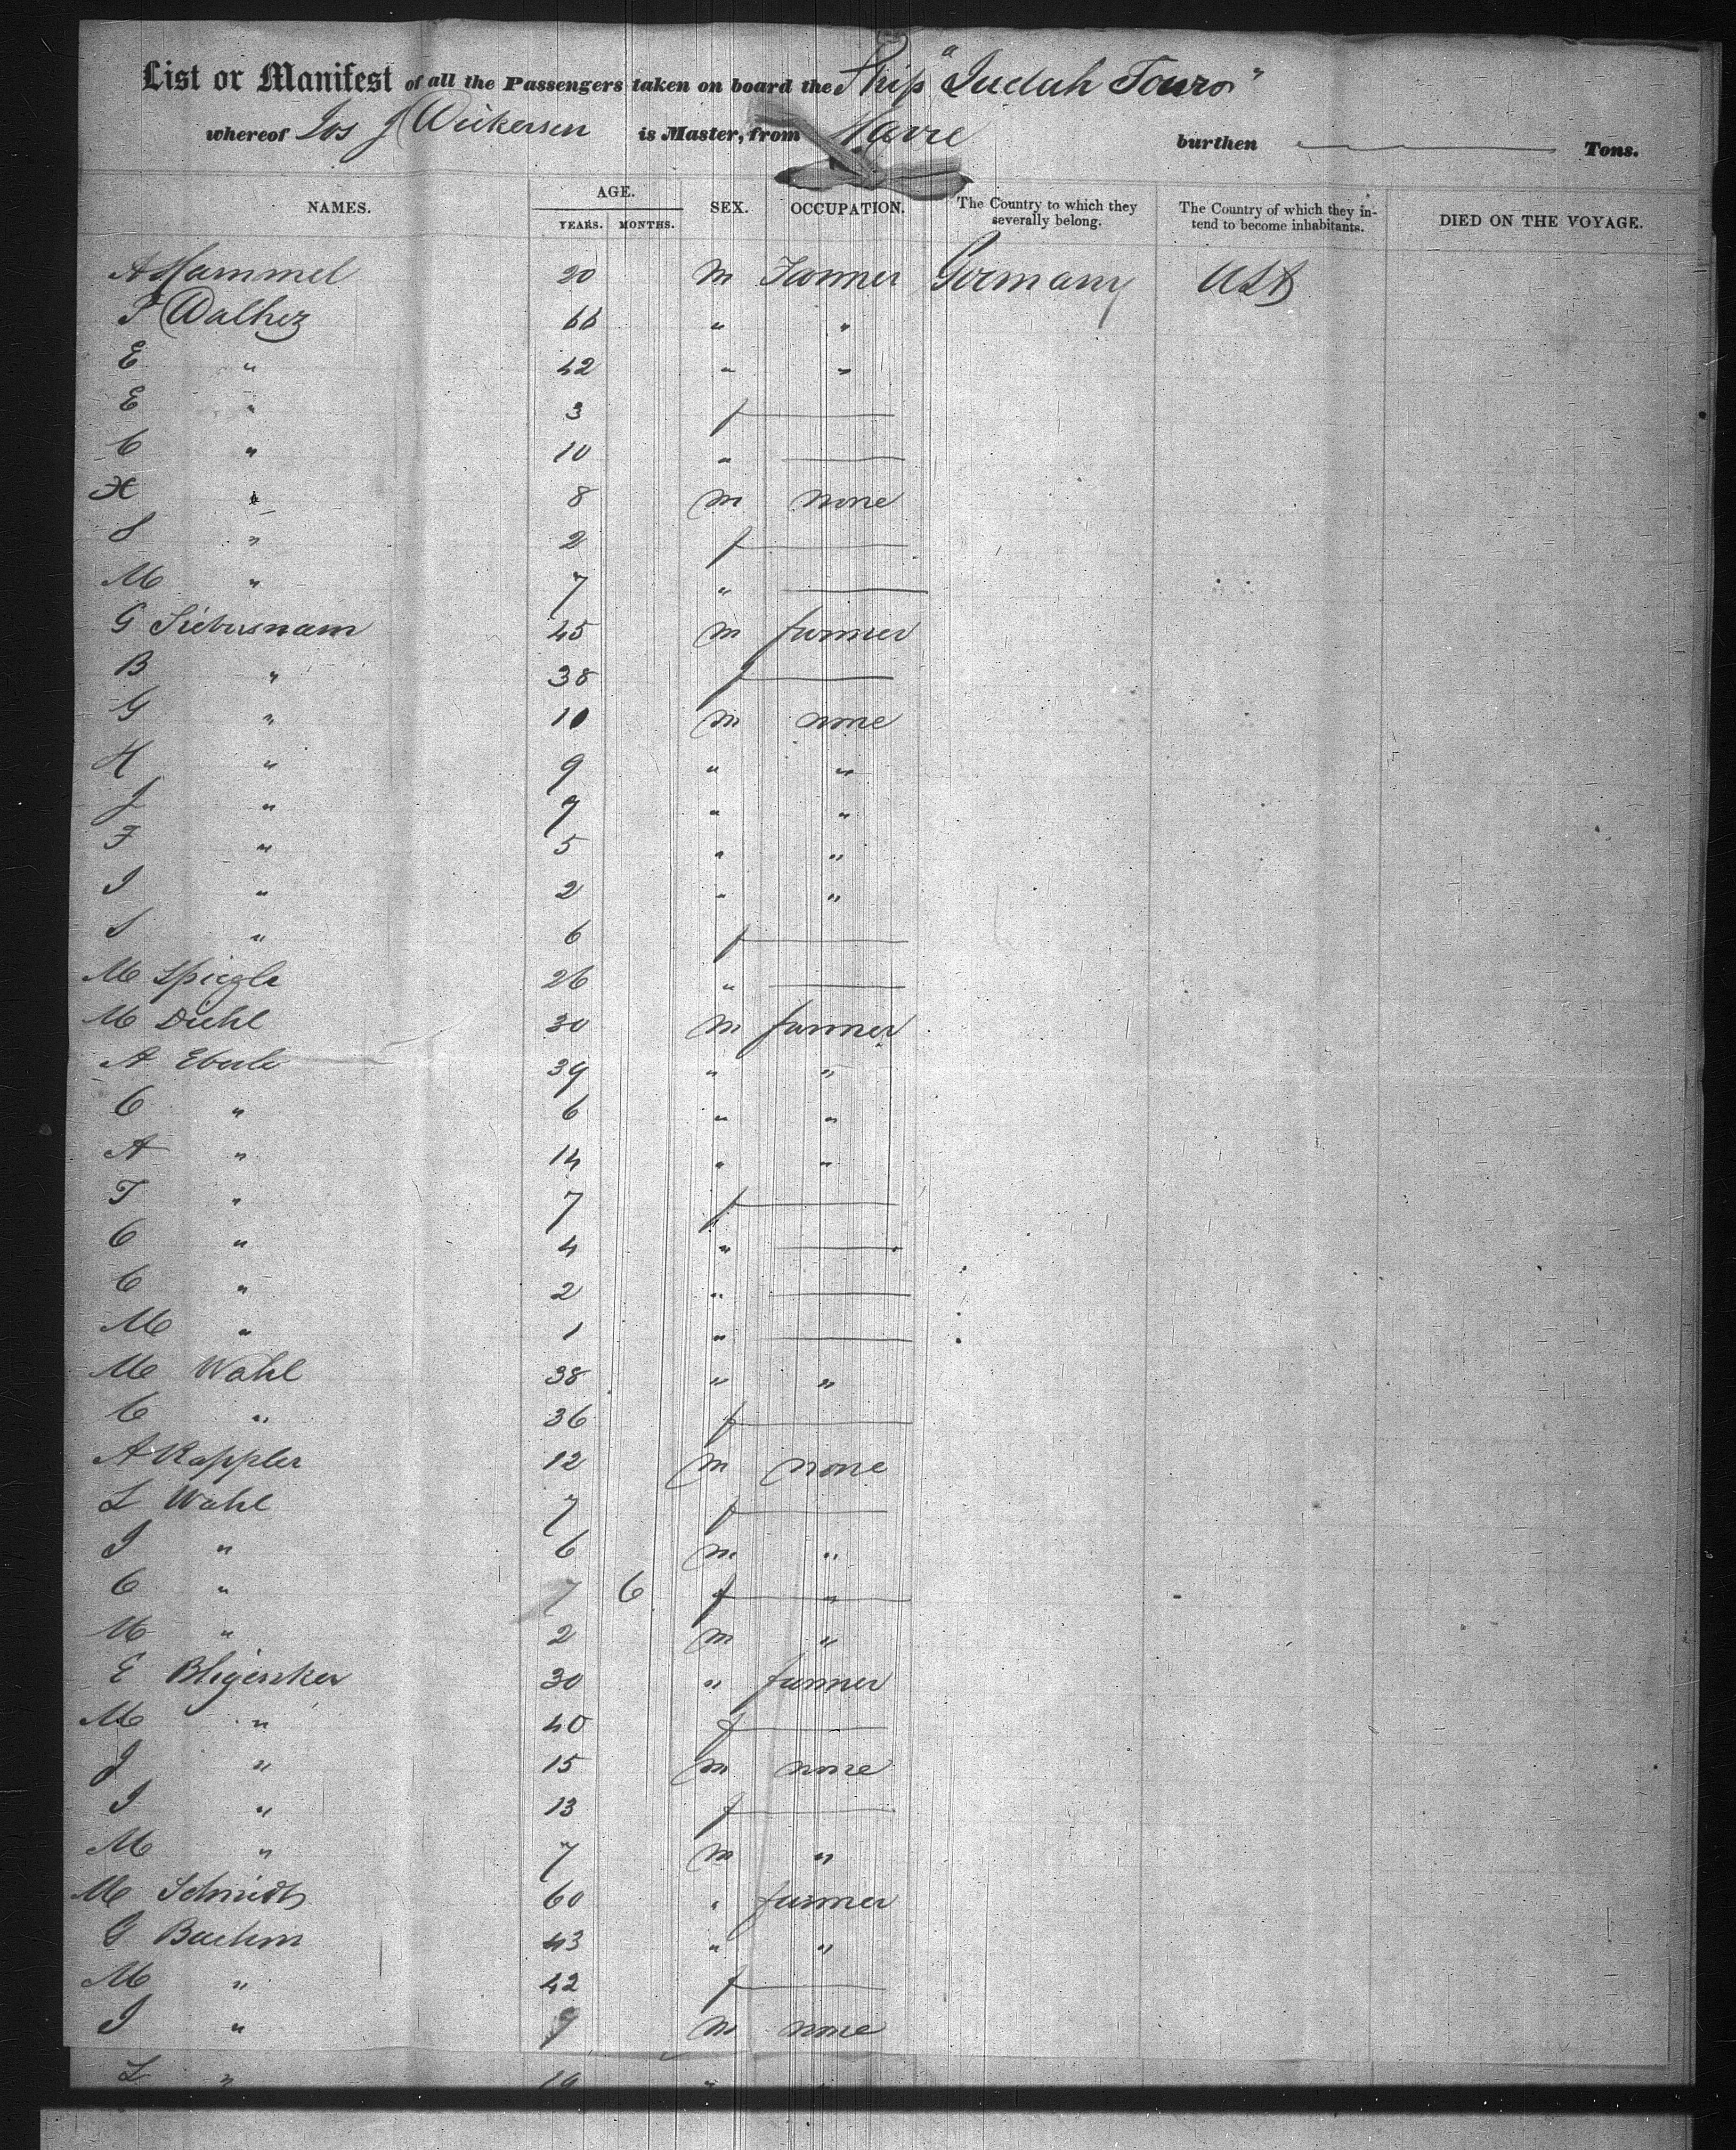 List or Manifest of all the Passengers taken on board the Ship "Judah Touro"
whereof Jos J Wickersen is Master, from Havre burthen Tons.
NAMES. AGE. YEARS. MONTHS. SEX. OCCUPATION. The Country to which they severally belong. The Country of which they intend to become inhabitants. DIED ON THE VOYAGE.
A Hammel 20 m Farmer Germany USA
F Walhez 66 " "
E " 42 " "
E " 3 f
C " 10 "
H " 8 m none
S " 2 f
M " 7 "
G 45 m farmer
B " 38 f
G " 10 m none
H " 9 " "
J " 7 " "
F " 5 " "
I " 2 " "
S " 6 f
M Spiegle 26 "
M Diehl 30 m farmer
A Eberle 39 " "
C " 6 " "
A " 14 " "
T " 7 f
C " 4 "
C " 2 "
M " 1 "
M Wahl 38 " "
C " 36 f
A Kappler 12 m none
L Wahl 7 f
I " 6 m "
C " 7 6 f "
M " 2 m "
E 30 " farmer
M " 40 f
J " 15 m none
I " 13 f
M " 7 m "
M Schmidt 60 " farmer
G 43 " "
M " 42 f
I " 9 m none
L "